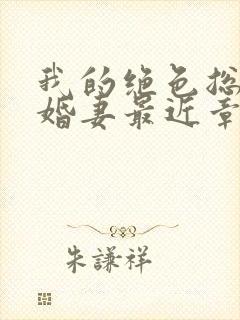 我的绝色总
婚妻最近章
朱謙祥